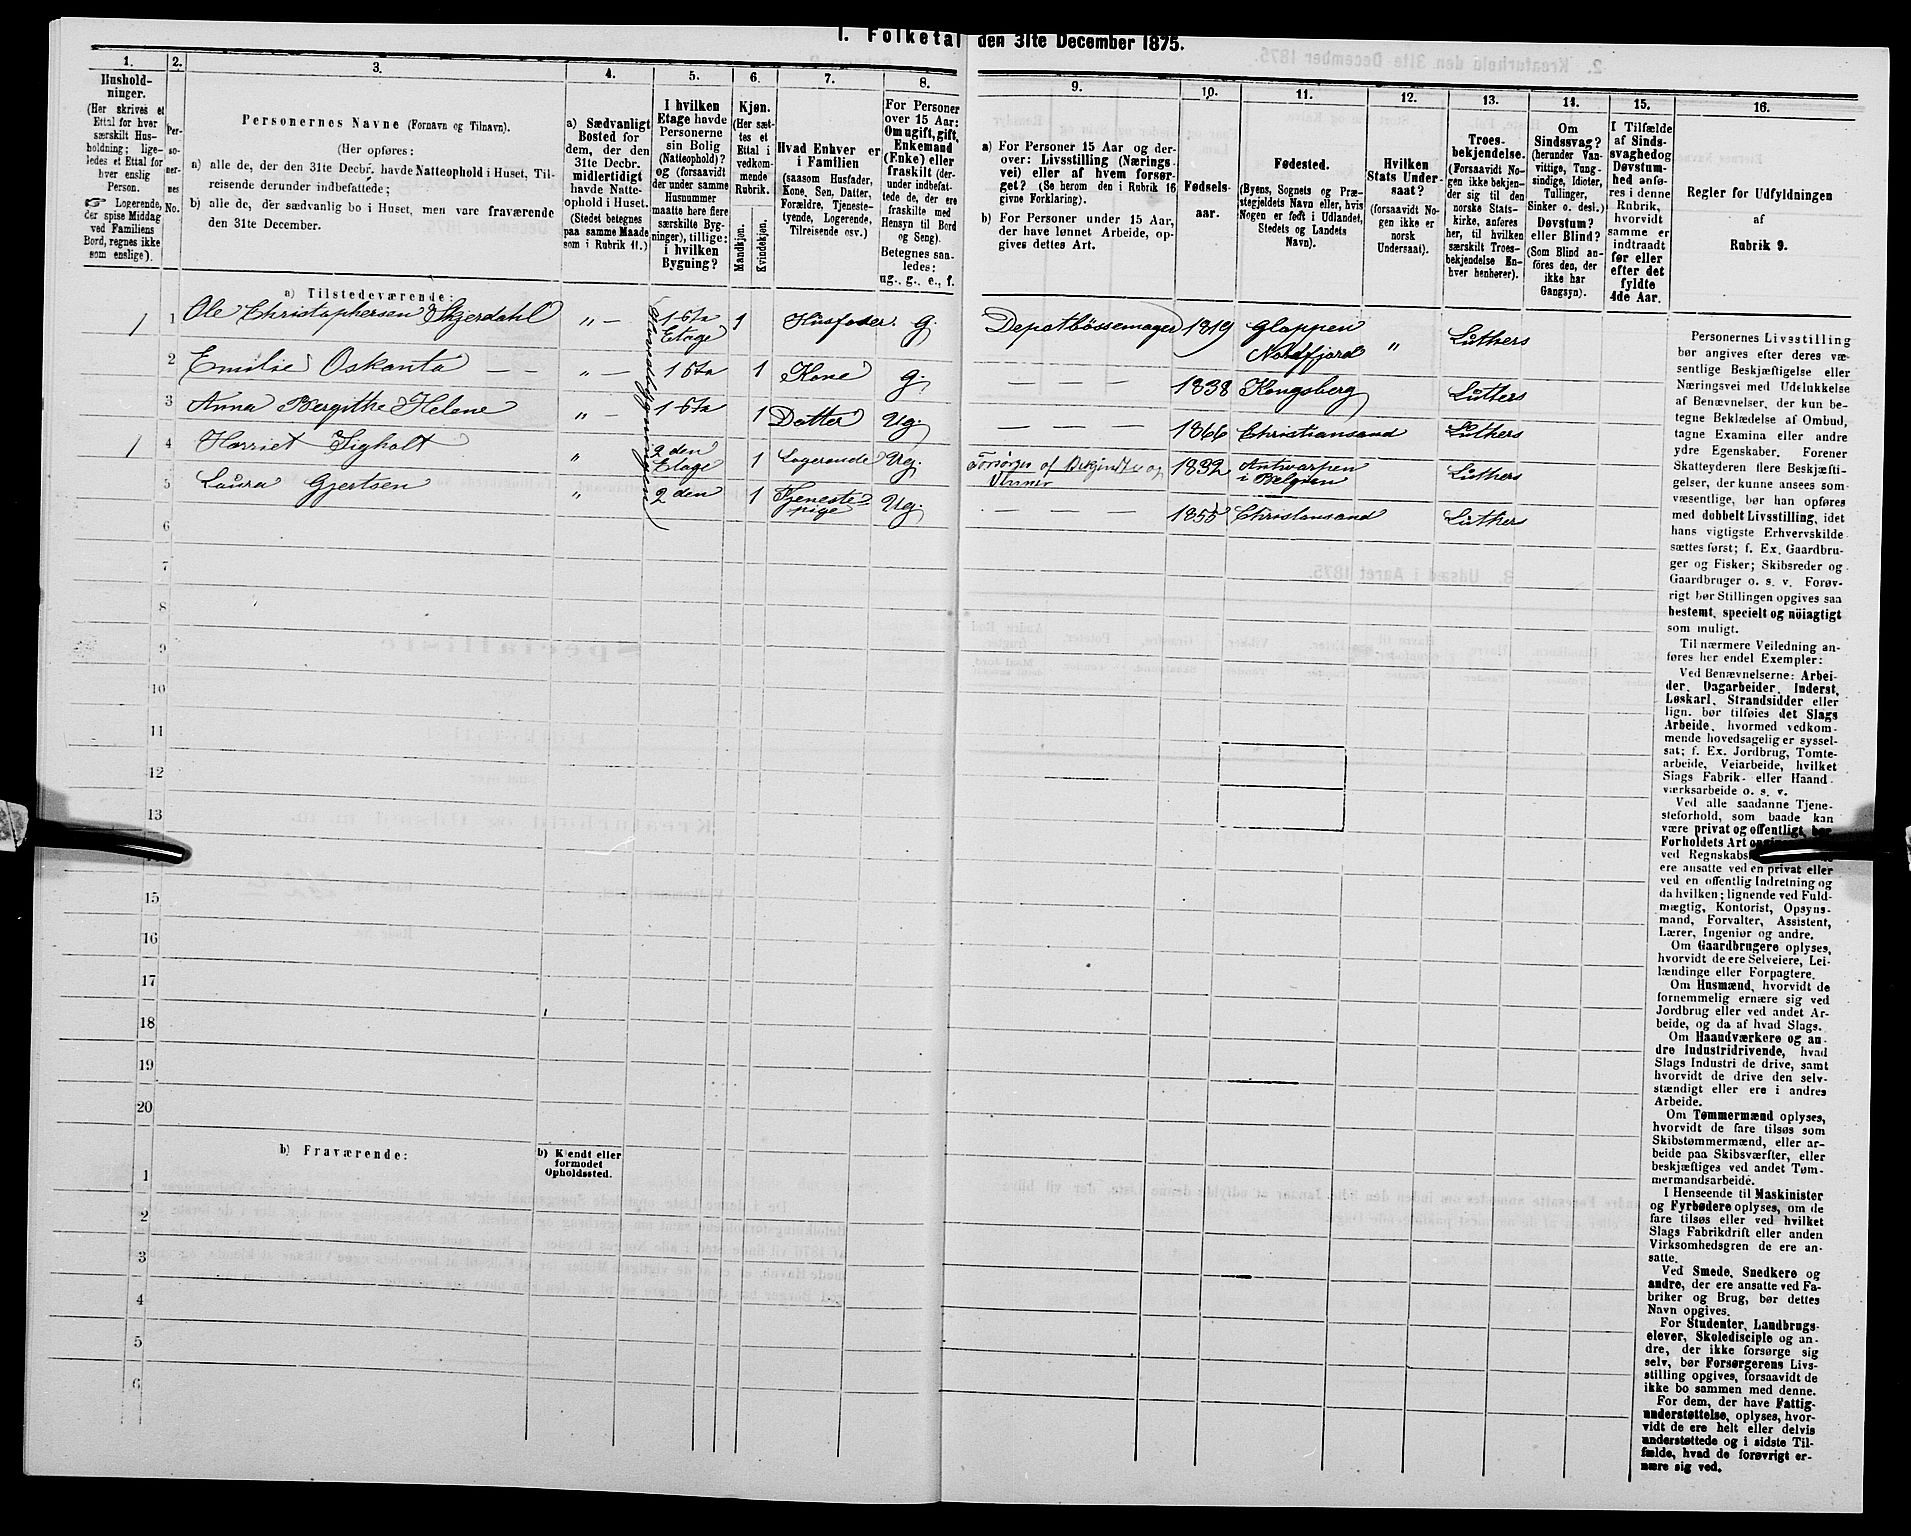 1. Folketal den 31te December 1875.
1.
Hushold-
ninger.
(Her skrives et
Ettal for hver
særskilt Hus-
holdning; lige-
ledes et Ettal for
hver enslig
Person.
☞ Logerende,
der spise Middag
ved Familiens
Bord, regnes ikke
som enslige).
2.
Per-
so-
ner-
nes
No.
3.
Personernes Navne (Fornavn og Tilnavn).
(Her opføres:
a) alle de, der den 31te Decbr. havde Natteophold i Huset, Til-
reisende derunder indbefattede;
b) alle de, der sædvanlig bo i Huset, men vare fraværende
den 31te December.
4.
a) Sædvanligt
Bosted for
dem, der den
31te Decbr.
midlertidigt
havde Natte-
ophold i Huset.
(Stedet betegnes
paa samme Maade
som i Rubrik 11.)
5.
I hvilken
Etage havde
Personerne
sin Bolig
(Natteophold)?
og (forsaavidt
der under samme
Husnummer
maatte høre flere
særskilte Byg-
ninger), tillige:
i hvilken
Bygning?
6.
Kjøn.
(Her sæt-
tes et
Ettal i
vedkom-
mende
Rubrik.
Mandkjøn.
Kvindekjøn.
7.
Hvad Enhver er
i Familien
(saasom Husfader,
Kone, Søn, Datter,
Forældre, Tjeneste-
tyende, Logerende,
Tilreisende osv.)
8.
For Personer
over 15 Aar:
Om ugift, gift,
Enkemand
(Enke) eller
fraskilt (der-
under indbefat-
tede de, der ere
fraskilte med
Hensyn til Bord
og Seng).
Betegnes saa-
ledes:
ug., g., e., f.
9.
a) For Personer 15 Aar og der-
over: Livsstilling (Nærings-
vei) eller af hvem forsør-
get? (Se herom den i Rubrik 16
givne Forklaring).
b) For Personer under 15 Aar,
der have lønnet Arbeide, op-
gives dettes Art.
10.
Fødsels-
aar.
11.
Fødested.
(Byens, Sognets og Præ-
stegjeldets Navn eller, hvis
Nogen er født i Udlandet,
Stedets og Landets
Navn).
12.
Hvilken
Stats Under-
saat?
(forsaavidt No-
gen ikke er
norsk
Undersaat).
13.
Troes-
bekjendelse.
(Forsaavidt No-
gen ikke bekjen-
der sig til den
norske Stats-
kirke, anføres
her, til hvilken
særskilt Troes-
bekjendelse En-
hver henhører).
14.
Om
Sindssvag?
(herunder Van-
vittige, Tung-
sindige, Idioter,
Tullinger,
Sinker o. desl.)
Døvstum?
eller Blind?
(Som Blind an-
føres den, der
ikke har
Gangsyn).
15.
I Tilfælde
af Sinds-
svaghed og
Døvstum-
hed anfø-
res i denne
Rubrik,
hvorvidt
samme er
indtraadt
før eller
efter det
fyldte
4de Aar.
16.
Regler for Udfyldningen
af
Rubrik 9.
a) Tilstedeværende:
1 1 Ole Christophersen Skjerdahl „ — 1 ste Etage 1 Husfader. G. Depotbøssemager 1819 Gloppen Nordfjord „ Luthers
Hovedbygningen
2 Emilie Oskanta — — „ — 1 ste 1 Kone G. — — 1838 Kongsberg Luthers
3 Anna Bergithe Helene „ — 1 ste 1 Datter Ug. — — 1866 Christiansand Luthers
1 4 Harriet Sigholt „ 2 den Etage 1 Logerende Ug. Forsørges af 1832 Antwarpen i Belgien Luthers
5 Laura Gjertsen „ 2 den 1 Tjeneste pige Ug. — — 1855 Christiansand Luthers
6
7
8
9
10
11
12
13
15
16
17
18
19
20
b) Fraværende:
b) Kjendt eller
formodet
Opholdssted.
1
2
3
4
5
6
Personernes Livsstilling
bør angives efter deres væ-
sentlige Beskjæftigelse eller
Næringsvei med Udelukkelse
af Benævnelser, der kun be-
tegne Beklædelse af Ombud,
tagne Examina eller andre
ydre Egenskaber. Forener
Skatteyderen flere Beskjæfti-
gelser, der kunne ansees som
væsentlige, bør han opføres
med dobbelt Livsstilling, idet
hans vigtigste Erhvervskilde
sættes først; f. Ex. Gaardbru-
ger og Fisker; Skibsreder og
Gaardbruger o. s. v. Forøv-
rigt bør Stillingen opgives saa
bestemt, specielt og nöiagtigt
som muligt.
Til nærmere Veiledning an-
føres her endel Exempler:
Ved Benævnelserne: Arbei-
der, Dagarbeider, Inderst,
Løskarl, Strandsidder eller
lign. bør tilføies det Slags
Arbeide, hvormed vedkom-
mende hovedsagelig er syssel-
sat; f. Ex. Jordbrug, Tomte-
arbeide, Veiarbeide, hvilket
Slags Fabrik- eller Haand-
værksarbeide o. s. v.
Ved alle saadanne Tjene-
steforhold, som baade kan
være privat og offentligt, bør
Forholdets Art
ved
ere ansatte ved en privat eller
ved en offentlig Indretning og
da hvilken; lignende ved Fuld-
mægtig, Kontorist, Opsyns-
mand, Forvalter, Assistent,
Lærer, Ingeniør og andre.
Om Gaardbrugere oplyses,
hvorvidt de ere Selveiere, Lei-
lændinge eller Forpagtere.
Om Husmænd, hvorvidt de
fornemmelig ernære sig ved
Jordbrug eller ved andet Ar-
beide, og da af hvad Slags.
Om Haandværkere og an-
dre Industridrivende, hvad
Slags Industri de drive, samt
hvorvidt de drive den selv-
stændigt eller ere i andres
Arbeide.
Om Tømmermænd oplyses,
hvorvidt de fare tilsøs som
Skibstømmermænd, eller ar-
beide paa Skibsværfter, eller
beskjæftiges ved andet Tøm-
mermandsarbeide.
I Henseende til Maskinister
og Fyrbødere oplyses, om de
fare tilsøs eller ved hvilket
Slags Fabrikdrift eller anden
Virksomhedsgren de ere an-
satte.
Ved Smede, Snedkere og
andre, der ere ansatte ved Fa-
briker og Brug, bør dettes
Navn opgives.
For Studenter, Landbrugs-
elever, Skoledisciple og an-
dre, der ikke forsørge sig
selv, bør Forsørgerens Livs-
stilling opgives, forsaavidt de
ikke bo sammen med denne.
For dem, der have Fattig-
understøttelse, oplyses, hvor-
vidt de ere helt eller delvis
understøttede og i sidste Til-
fælde, hvad de forøvrigt er-
nære sig ved.